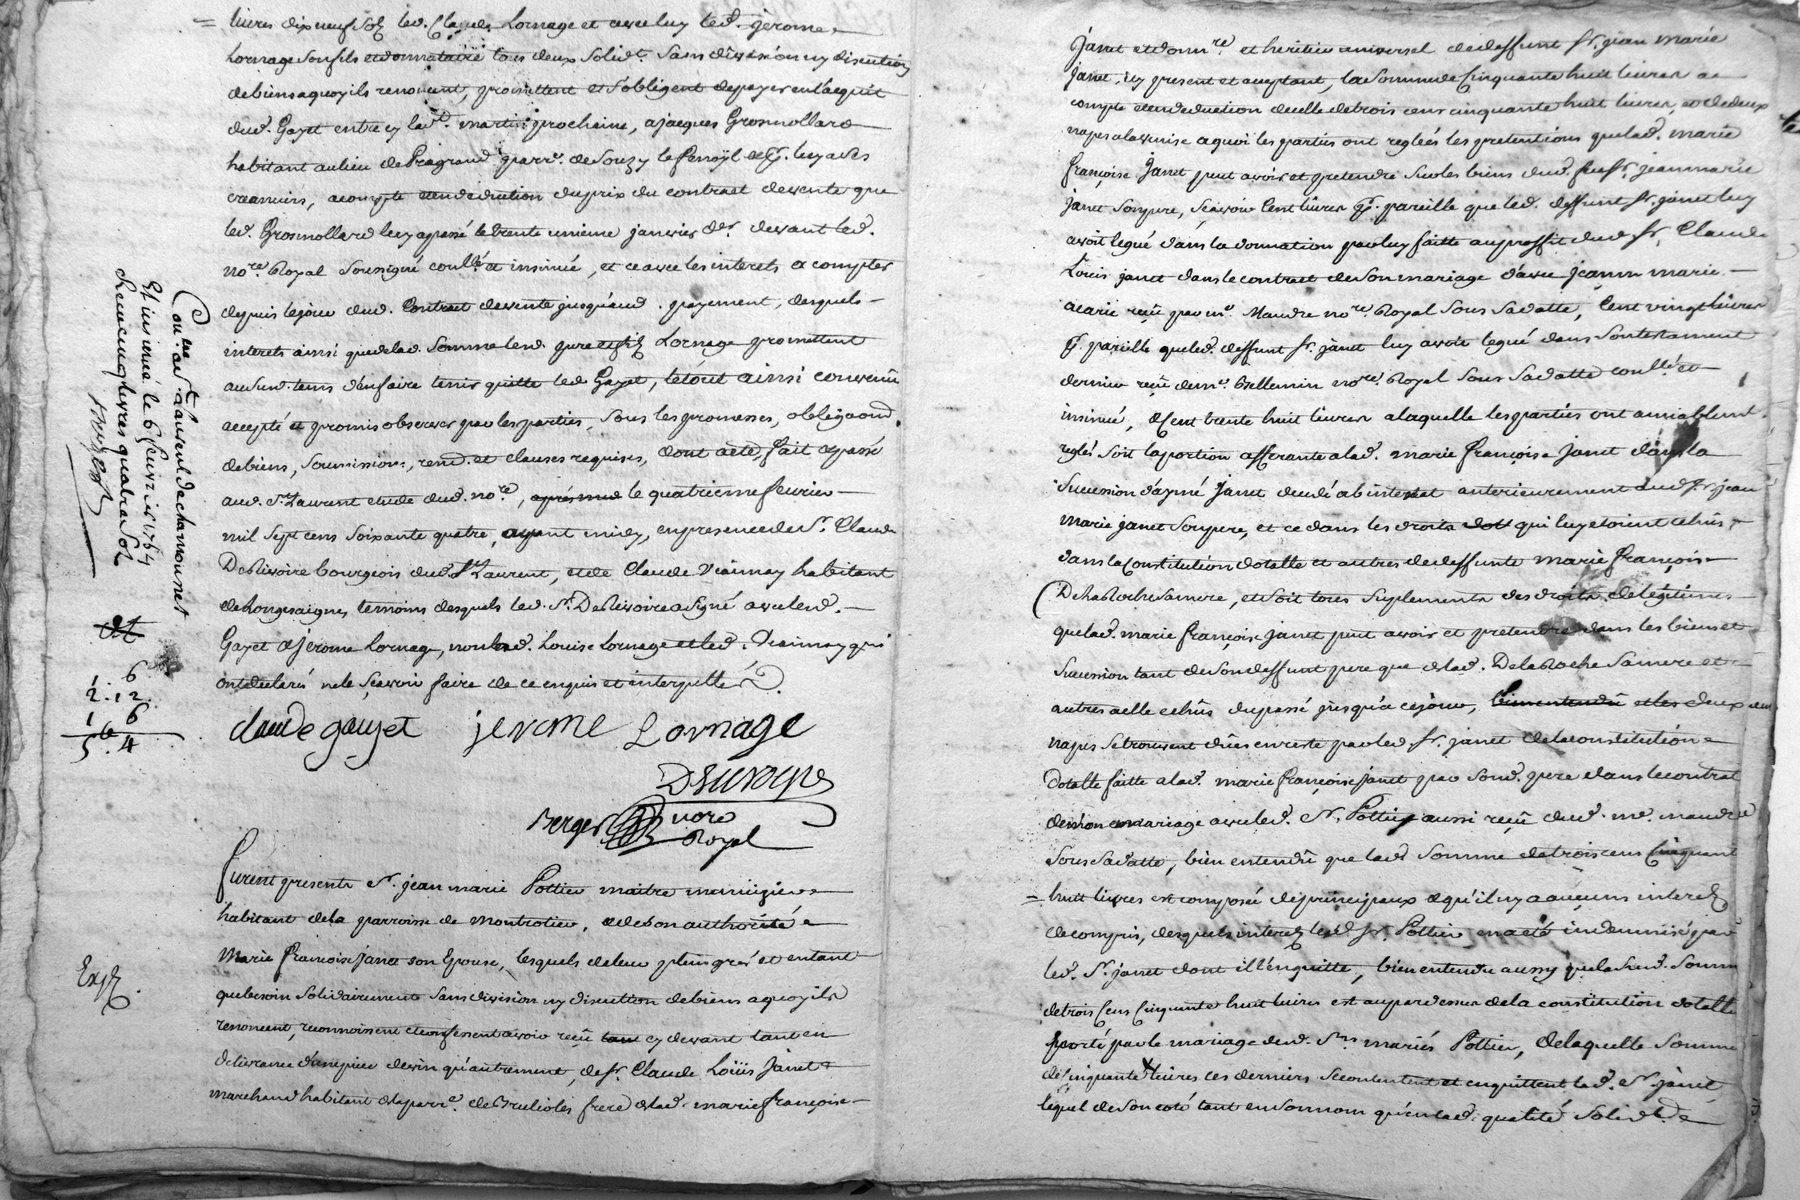 = livres dix neuf sols led. Claude Lornage et avec luy led. jerome
Lornage son fils et donnataire tous deux solid.t sans division ny discution
de biens a quoy ils renoncent, promettent et s'obligent de payer en l'acquit
dud. Gayet entre cy la St. martin prochaine, a jacques Grosmollard
habitant au lieu de parr.e de Souzy
creancier, a compte et en deduction du prix du contract de vente que
led. Grosmollard luy a passé le trente unieme janvier d.er devant led.
no.re Royal soussigné coull.é et insinué, et ce avec les interets a compter
depuis le jour dud. Contract de vente jusqu'aud. payement, desquels
interets ainsi que de lad. somme lesd. pere et fils Lornage promettent
aud. tems d'en faire tenir quitte led. Gayet, le tout ainsi convenu
accepté et promis observer par les parties, sous les promesses, obliga.ond
de biens, soumissions, rend. et clauses requises, dont acte, fait et passé
aud. St. Laurent etude dud. no.re, le quatrieme fevrier
mil sept cens soixante quatre, avant midy, en presence de Sr. Claude
bourgeois dud. St. Laurent, et de Claude habitant
de Longesaigne temoins desquels led. Sr. a signé avec lesd.
Gayet & jerome Lornage, non lad. Louise Lornage et led. qui
ont declaré ne le sçavoir faire de ce enquis et interpellés.
claude gayet jerome Lornage
Berger nore
Royal
Con.lle a St. Laurent de chamousset
Et insinué le 6 fevrier 1764
Receu cinq livres quatre sols
1 . 6
2 . 12
1 6
5 . 4
Furent presents Sr. jean marie Pottier maitre
habitant de la parroisse de Montrotier, & de son authorité
Marie françoise Janet son Epouse, lesquels de leur plein gré et entant
que besoin solidairement sans division ny discution de biens a quoy ils
renoncent, reconnoissent et confessent avoir reçû cy devant tant en
delivrance d'une piece de vin qu'autrement, de Sr. Claude Loüis Janet
marchand habitant de la parr.e de Brulioles frere de lad. marie françoise
Exp.
Janet et donn.re et heritier universel de deffunt Sr. jean marie
Janet, icy present et acceptant, la somme de Cinquante huit livres a
compte et en deduction de celle de trois cens cinquante huit livres, et de deux
napes a laquoi les parties ont reglées les pretentions que lad. marie
françoise Janet peut avoir et pretendre sur les biens dud. feu Sr. jean marie
Janet son pere, sçavoir Cent livres pareille que led. deffunt Sr. janet luy
avoit legué dans la donnation par luy faitte au proffit dud. Sr. Claude
Loüis janet dans le contract de son mariage avec jeanne marie
reçû par m.e Maudre no.re Royal sous sa datte, Cent vingt livres
pareille que led. deffunt Sr. janet luy avoit legué dans son testament
dernier reçû de m.e no.re Royal sous sa datte coull.é et
insinué, & Cent trente huit livres a laquelle les parties ont amiablem.t
reglé soit la portion afferante a lad. marie françoise Janet dans la
succession d'aymé Janet decedé ab intestat anterieurement aud. Sr. jean
marie janet son pere, et ce dans les droits qui luy etoient echûs
dans la Constitution dotalle et autres de deffunte marie françoise
Delaroche sa mere, et soit tous suplements des droits de legitimes
que lad. marie françoise Janet peut avoir et pretendre dans les biens et
succession tant de son deffunt pere que de lad. Delaroche sa mere et
autres a elle echûs du passé jusqu'a ce jour, et les deux
napes se trouvent dûes en reste par led. Sr. janet de la constitution
dotalle faitte a lad. marie françoise janet par son d. pere dans le contrat
de son mariage avec led. Sr. Pottier aussi reçû dud. m.e maudre
sous sa datte, bien entendû que lad. somme de trois cens Cinquant
= huit livres est composée de principaux & qu'il n'y a aucuns interets
de compris, desquels interets led. Sr. Pottier en a eté indemnisé par
led. Sr. janet dont il l'en quitte, bien entendu aussy que lad. somme
de trois Cens Cinquante huit livres est au par dessus de la constitution dotalle
porté par le mariage desd. Srs. mariés Pottier, de laquelle somme
de Cinquante livres ces derniers se contentent et en quittent led. Sr. janet
lequel de son coté tant en son nom qu'en lad. qualité